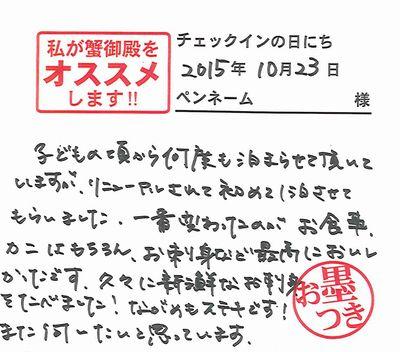 私が蟹御殿を
オススメ
します!!
チェックインの日にち
2015年 10月23日
ペンネーム 様
子どもの頃から何度も泊まらせて頂いて
いますが、リニューアルされて初めて泊させて
もらいました。一番変わったのが お食事。
カニはもちろん、お刺身など最高においし
かったです。久々に新鮮なお刺身
をたべました！ながめもステキです！
また行いたいと思っています。
お墨つき